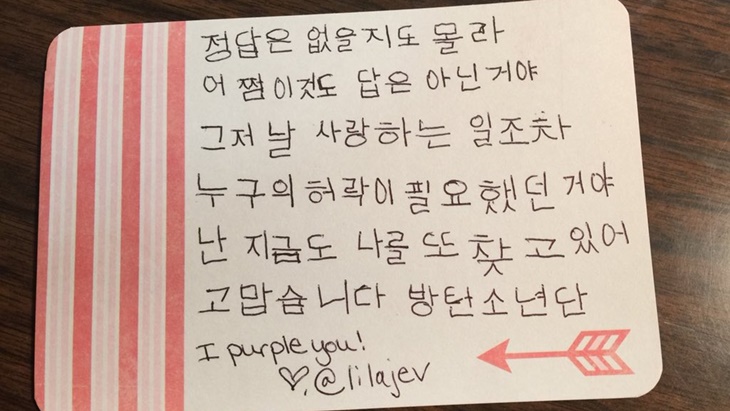 정답은 없을지도 몰라
어 쩜 이것도 답은 아닌 거야
그저 날 사랑하는 일조차
누구의 허락이 필요했던 거야
난 지금도 나를 또 찾고 있어
고맙습니다 방탄소년단
I purple you!
♡, @lilajev